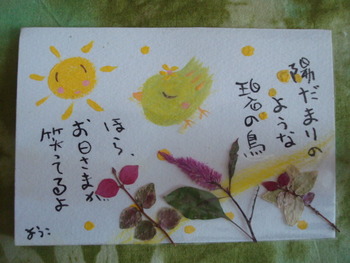 陽だまりの
ような
碧の鳥
ほら、
お日さまが
笑ってるよ
ようこ